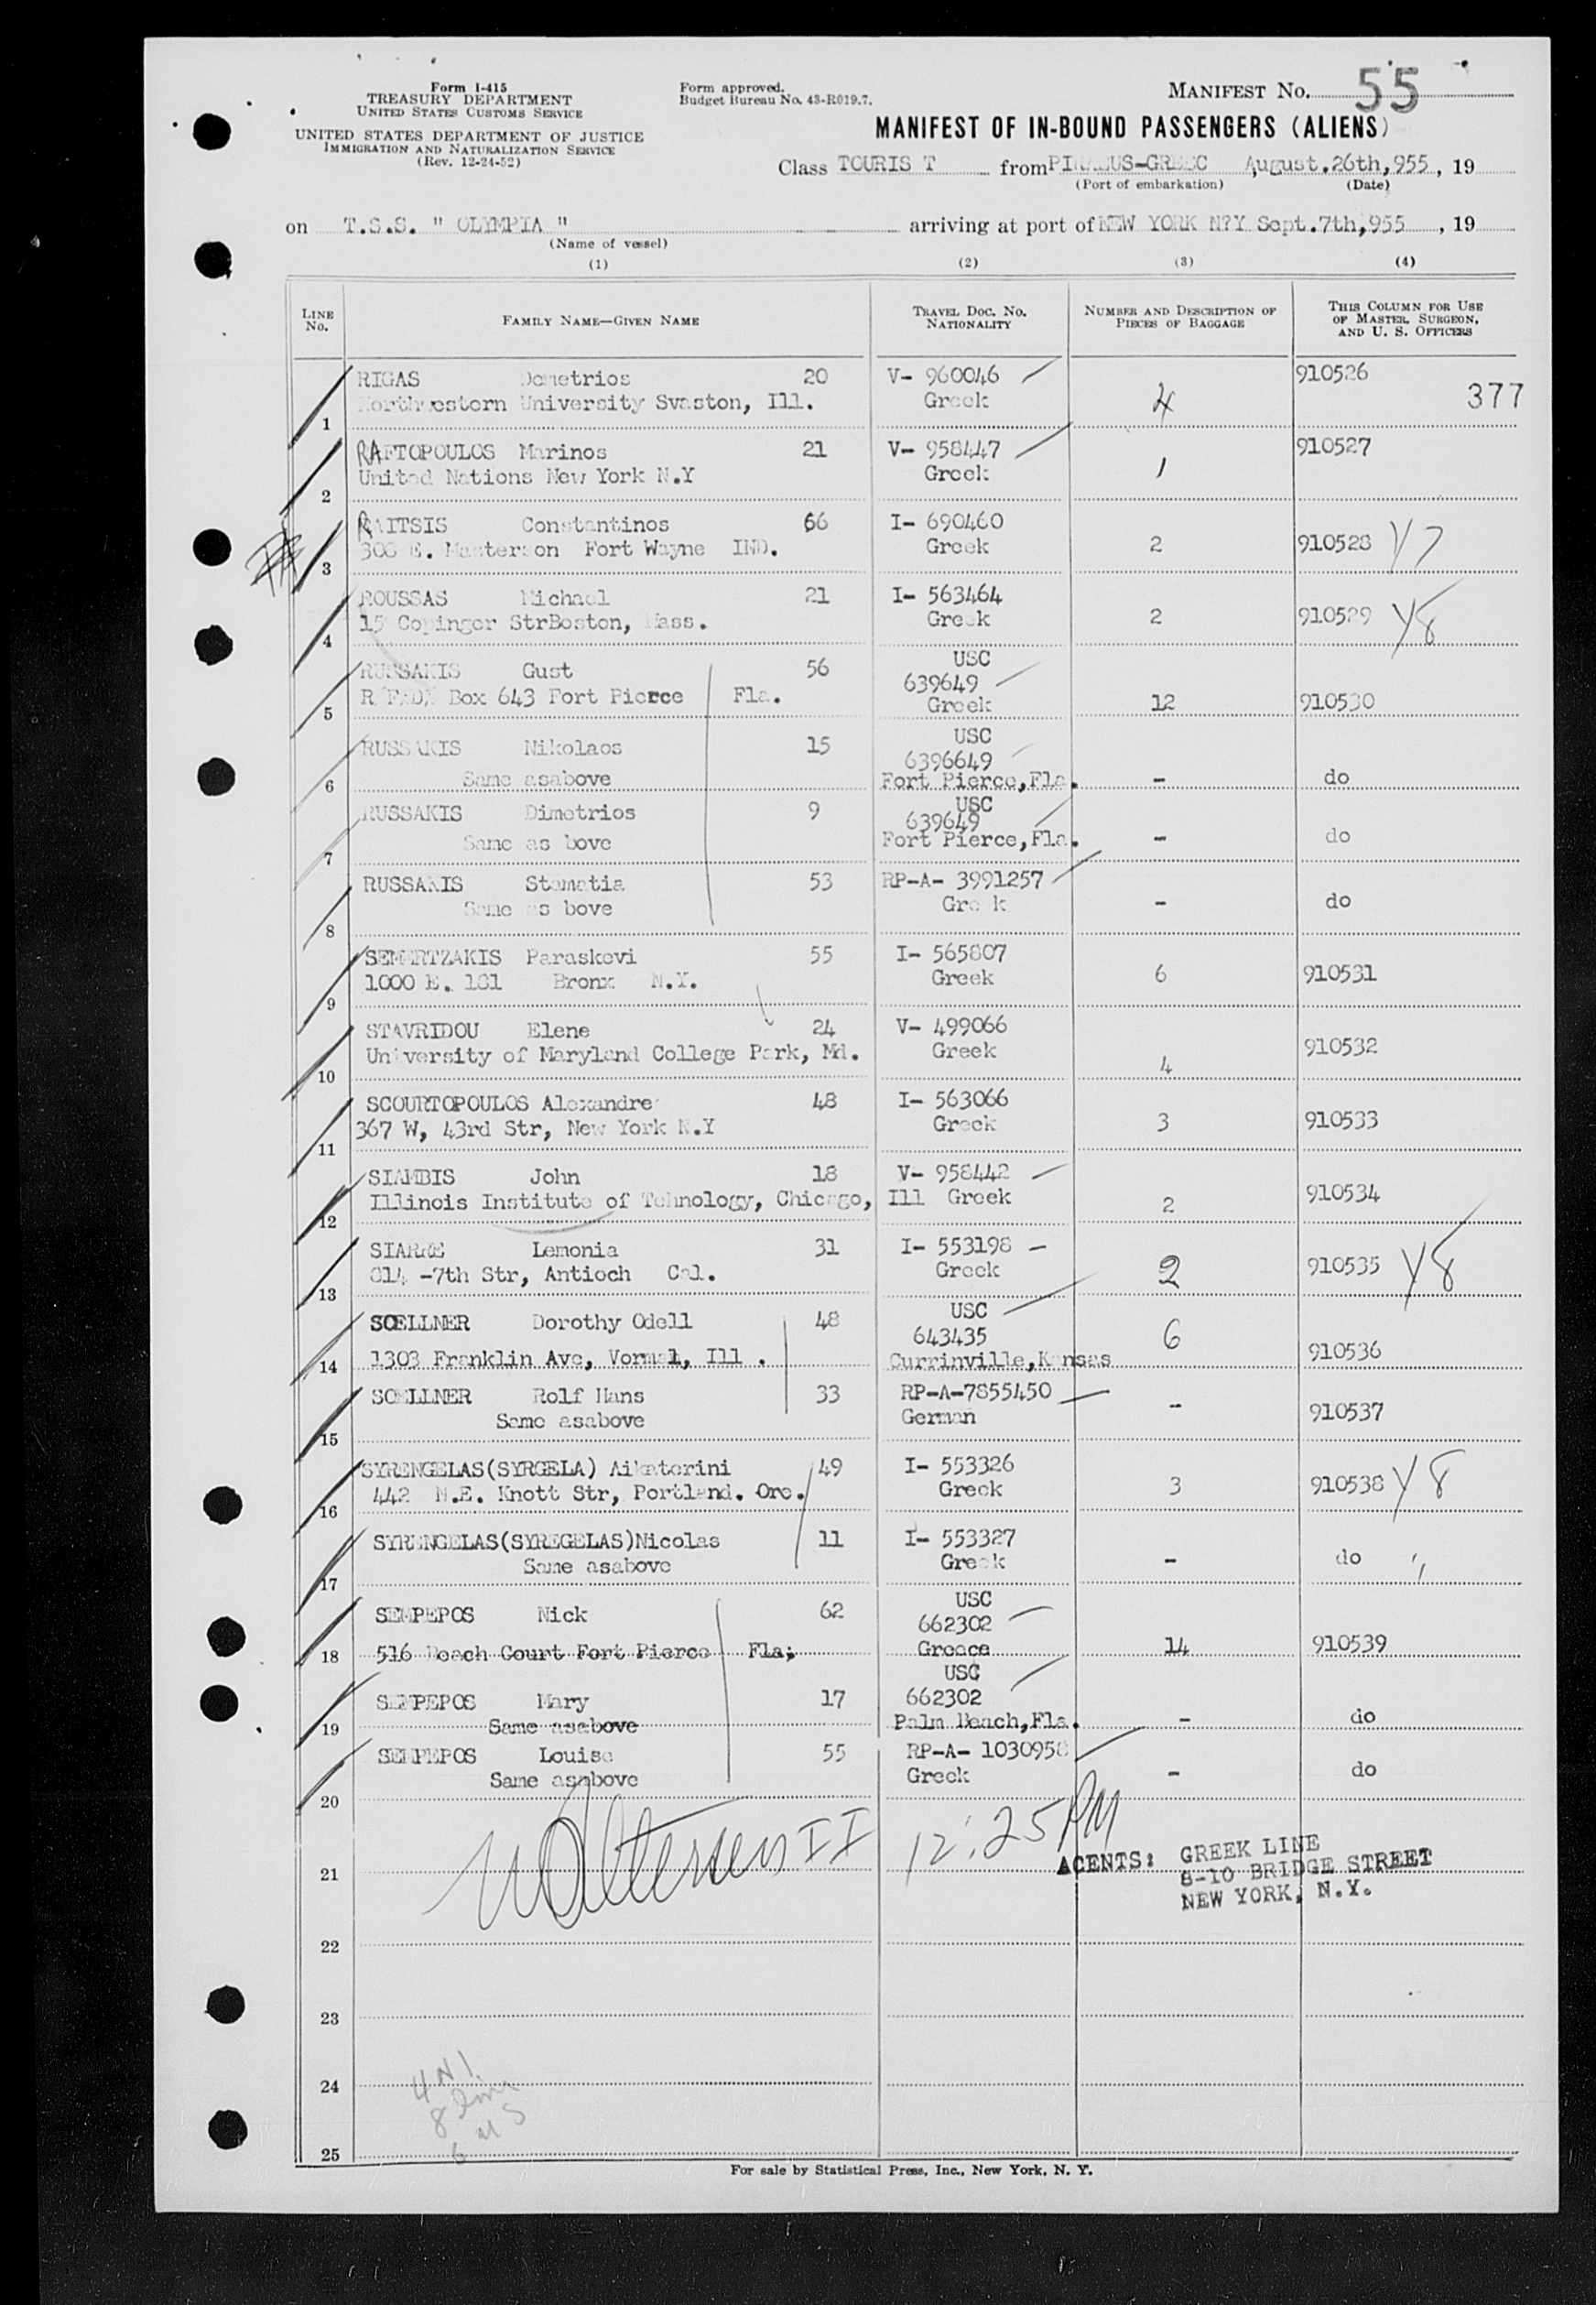 Form I-415
TREASURY DEPARTMENT
UNITED STATES CUSTOMS SERVICE
UNITED STATES DEPARTMENT OF JUSTICE
IMMIGRATION AND NATURALIZATION SERVICE
(Rev. 12-24-52)
Form approved.
Budget Bureau No. 43-R019.7.
MANIFEST NO. 55
MANIFEST OF IN-BOUND PASSENGERS (ALIENS)
Class TOURIS T from PIRAEUS-GREEC August.26th,955, 19
(Port of embarkation) (Date)
on T.S.S. " OLYMPIA " arriving at port of NEW YORK N?Y Sept.7th,955, 19
(Name of vessel)
(1) (2) (3) (4)
LINE No. FAMILY NAME—GIVEN NAME TRAVEL DOC. NO. NATIONALITY NUMBER AND DESCRIPTION OF PIECES OF BAGGAGE THIS COLUMN FOR USE OF MASTER, SURGEON, AND U. S. OFFICERS
RIGAS Demetrios 20 V- 960046 910526
1 Northwestern University Svaston, Ill. Greek 4 377
RAFTOPOULOS Marinos 21 V- 958447 910527
2 United Nations New York N.Y Greek 1
RAITSIS Constantinos 66 I- 690460
3 308 E. Masterson Fort Wayne IND. Greek 2 910528 Y7
ROUSSAS Michael 21 I- 563464
4 15 Copinger StrBoston, Mass. Greek 2 910529 Y8
RUSSAKIS Gust 56 USC 639649
5 R F.D. Box 643 Fort Pierce Fla. Greek 12 910530
RUSSAKIS Nikolaos 15 USC 6396649
6 Same asabove Fort Pierce,Fla. - do
RUSSAKIS Dimetrios 9 USC 639649
7 Same as bove Fort Pierce,Fla. - do
RUSSAKIS Stamatia 53 RP-A- 3991257
8 Same as bove Greek - do
SEMERTZAKIS Paraskevi 55 I- 565807
9 1000 E. 181 Bronx N.Y. Greek 6 910531
STAVRIDOU Elene 24 V- 499066
10 University of Maryland College Park, Md. Greek 4 910532
SCOURTOPOULOS Alexandre 48 I- 563066
11 367 W, 43rd Str, New York N.Y Greek 3 910533
SIAMBIS John 18 V- 958442
12 Illinois Institute of Tehnology, Chicago, Ill Greek 2 910534
Lemonia 31 I- 553198
13 814 -7th Str, Antioch Cal. Greek 2 910535 Y8
SOELLNER Dorothy Odell 48 USC 643435
14 1303 Franklin Ave, Vormal, Ill . Currinville,Kansas 6 910536
SOELLNER Rolf Hans 33 RP-A-7855450
15 Same asabove German - 910537
SYRENGELAS(SYRGELA) Aikaterini 49 I- 553326
16 442 N.E. Knott Str, Portland. Ore. Greek 3 910538 Y8
SYRENGELAS(SYREGELAS)Nicolas 11 I- 553327
17 Same asabove Greek - do "
SEMPEPOS Nick 62 USC 662302
18 516 Beach Court Fort Pierce Fla; Greece 14 910539
SEMPEPOS Mary 17 USC 662302
19 Same asabove Palm Beach,Fla. - do
SEMPEPOS Louise 55 RP-A- 1030958
20 Same asabove Greek - do
12:25 PM
21 AGENTS: GREEK LINE
8-10 BRIDGE STREET
NEW YORK, N.Y.
22
23
24
4 N I
8
6 U S
25
For sale by Statistical Press, Inc., New York, N. Y.